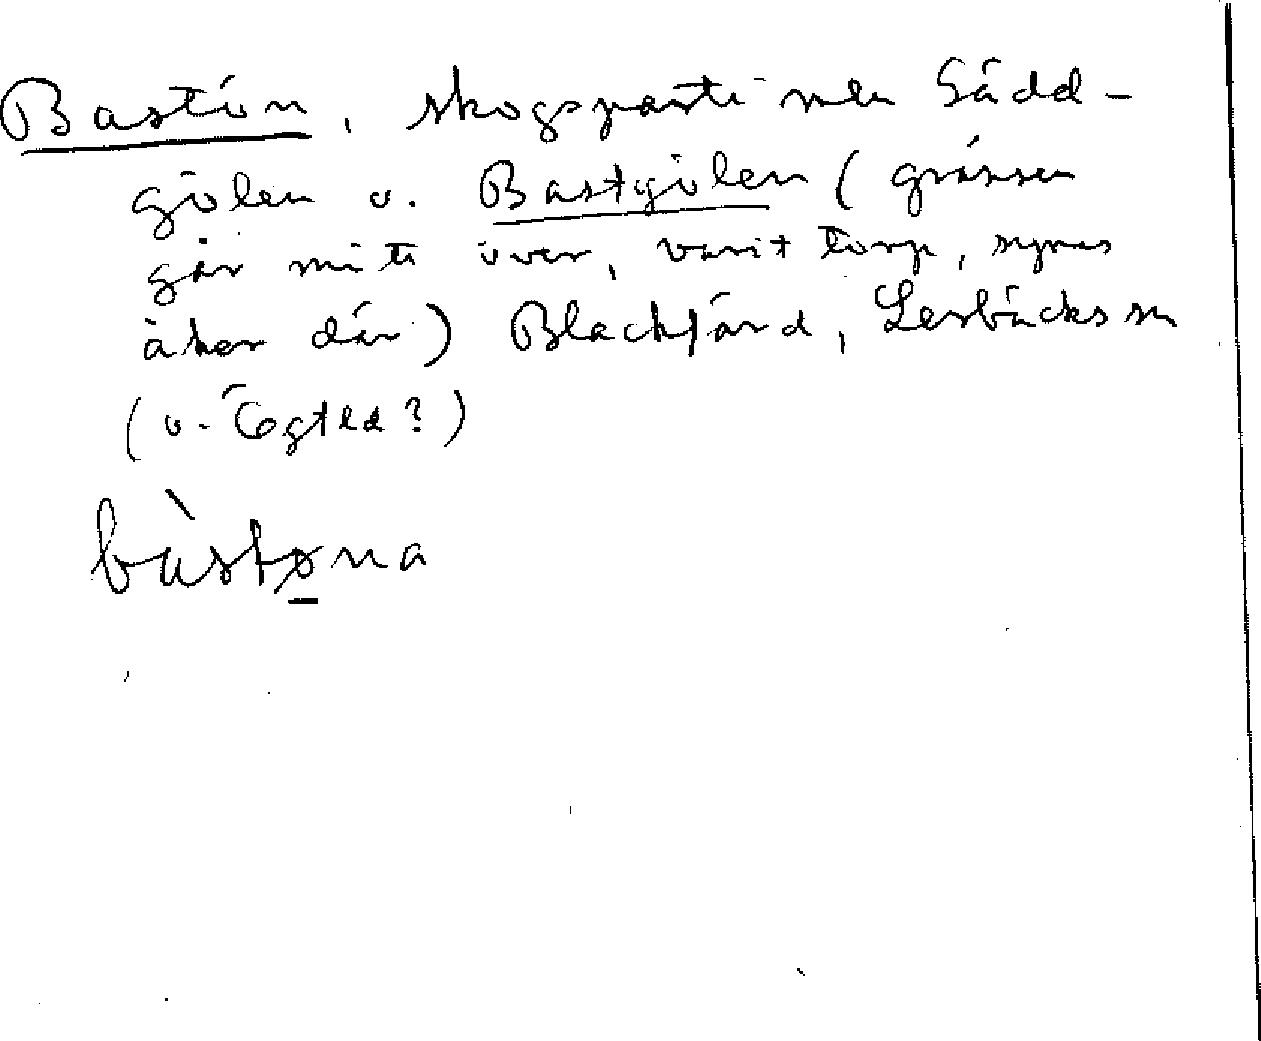 Bastön, skogsparti mln Sädd-
gölen o. Bastgölen (gränsen
går mitt över, varit torp, synas
åker där) Blackfärd, Lerbäcks sn
(o. Ögtld?)
bàstøna